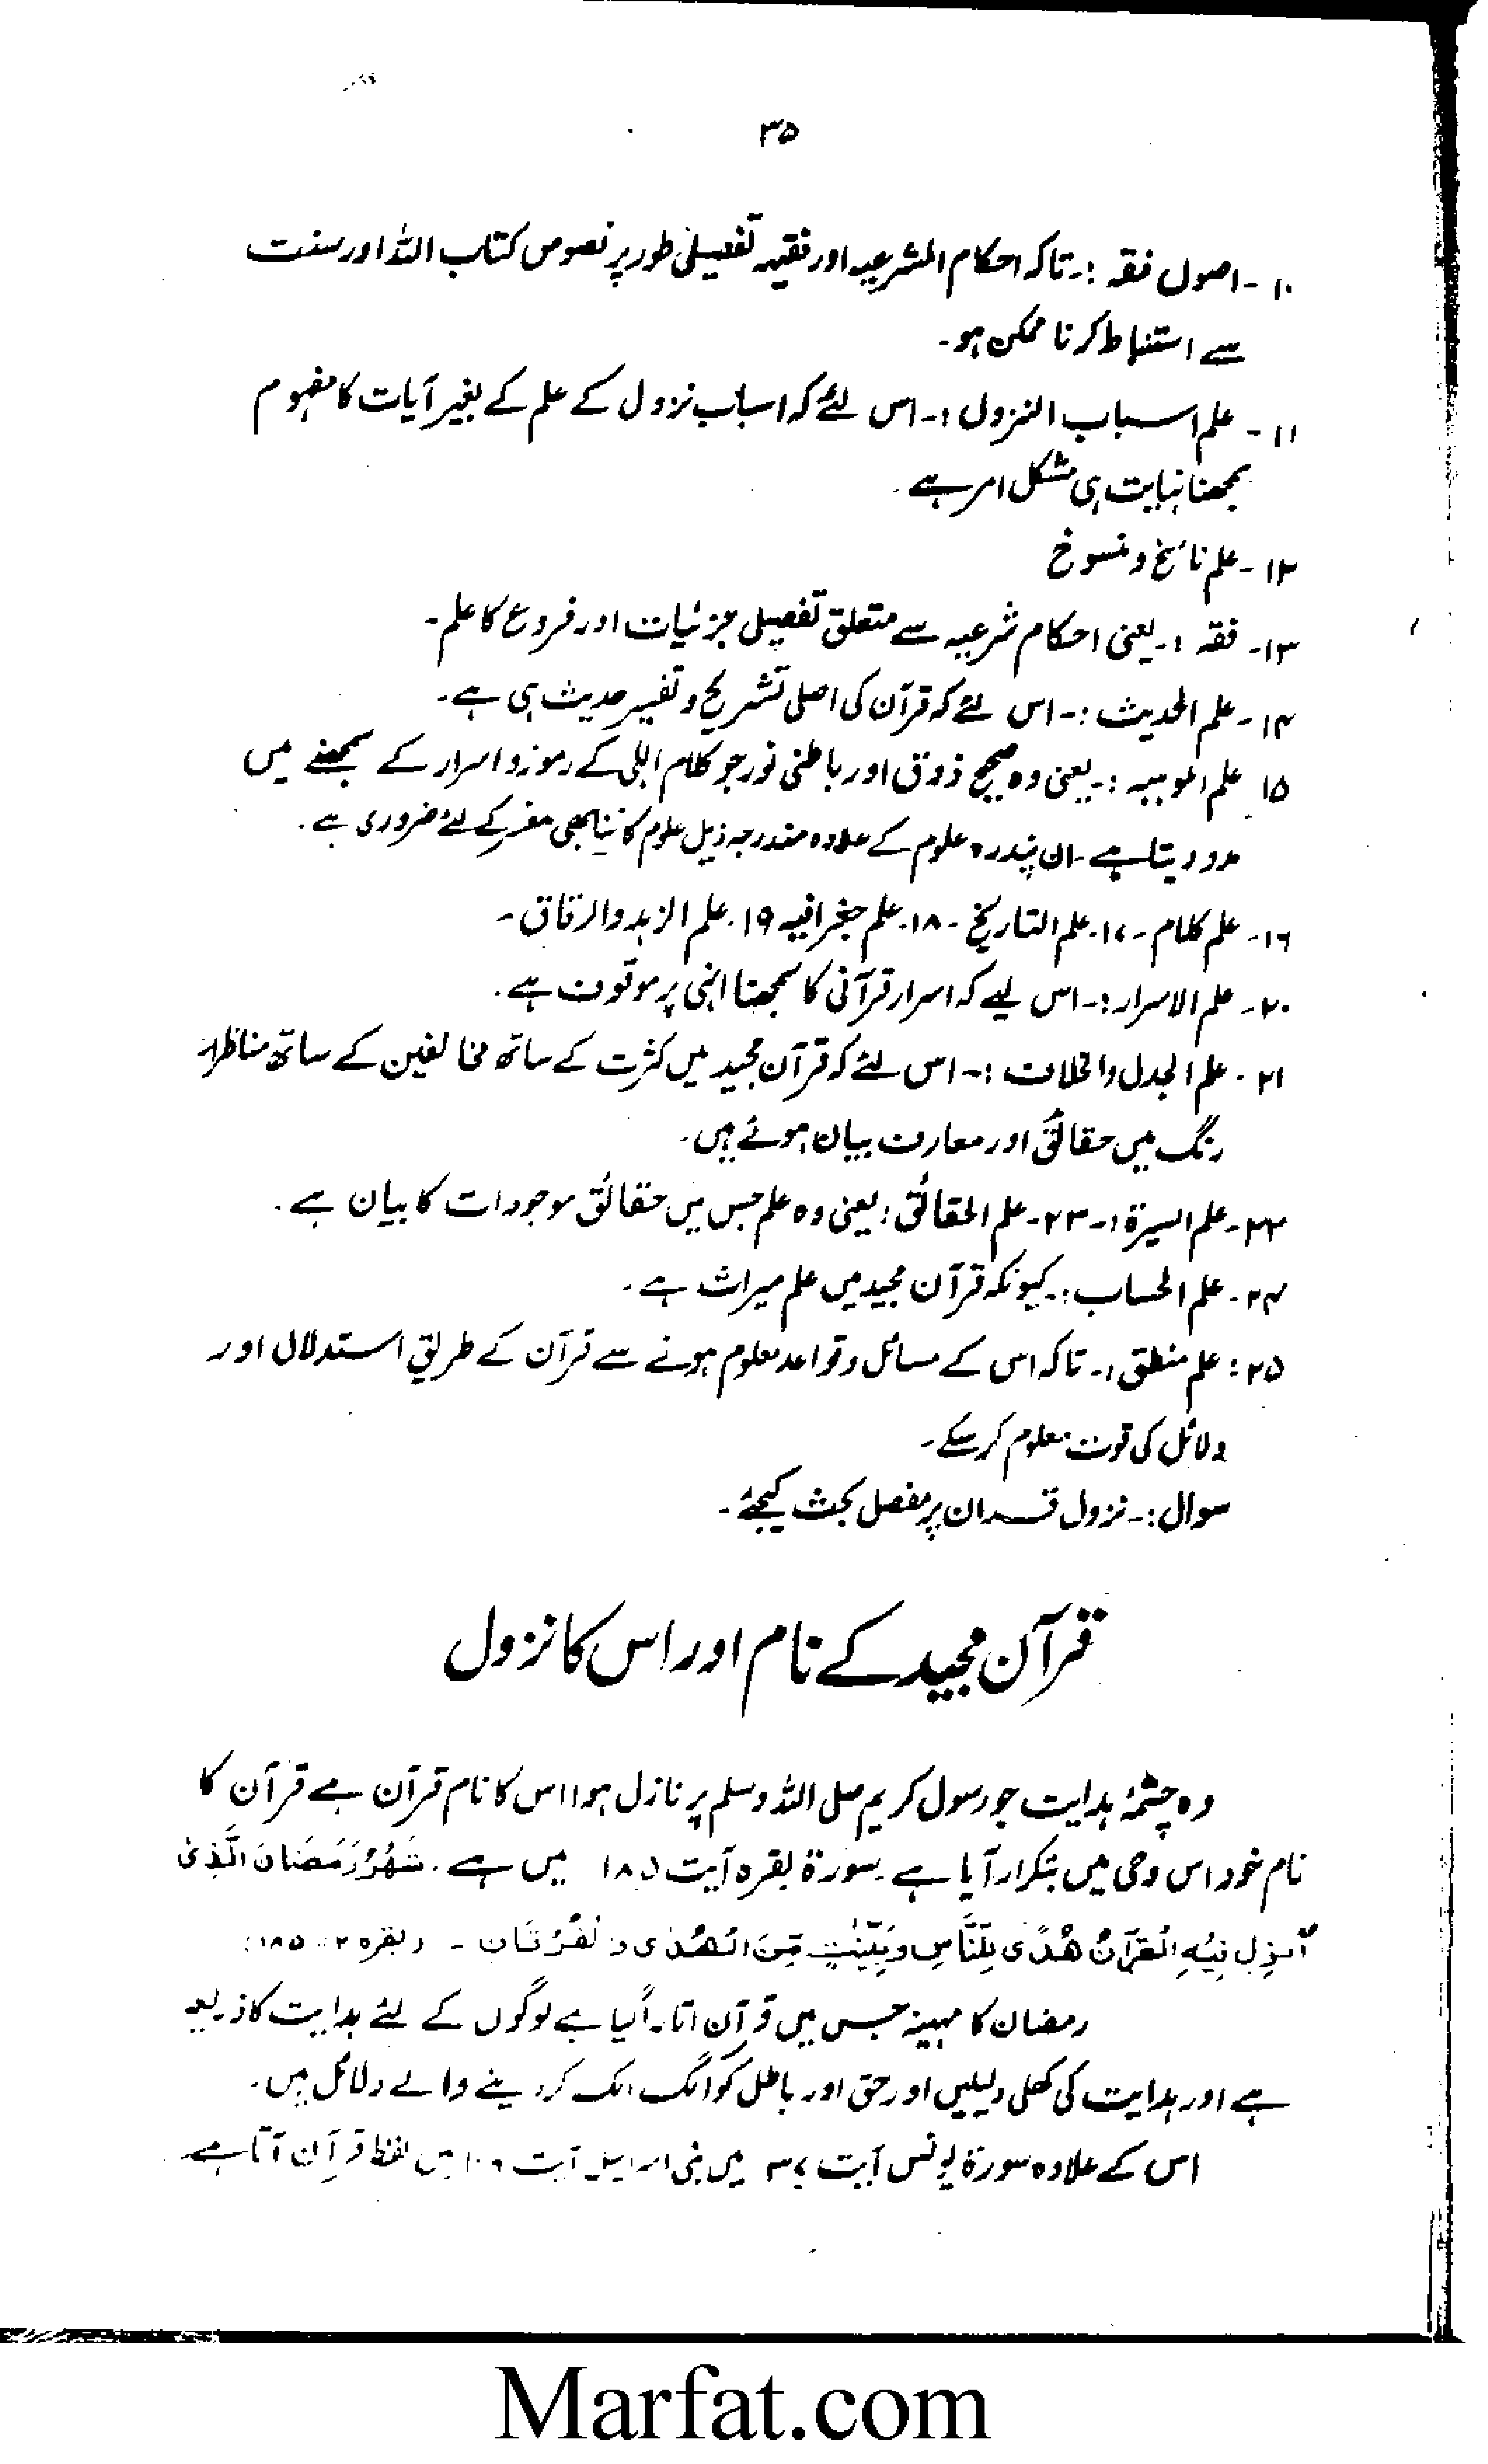 ۳۵
۱۰ - اصول فقہ :- تاکہ احکام الشرعیہ اور فقیہہ تفصیلی طور پر نصوص کتاب اللہ اور سنت
سے استنباط کرنا ممکن ہو۔
۱۱ - علم اسباب النزول :- اس لئے کہ اسباب نزول کے علم کے بغیر آیات کا مفہوم
سمجھنا نہایت ہی مشکل امر ہے۔
۱۲ - علم ناسخ و منسوخ
۱۳ - فقہ :- یعنی احکام شرعیہ سے متعلق تفصیلی جزئیات اور فروع کا علم۔
۱۴ - علم الحدیث :- اس لئے کہ قرآن کی اصلی تشریح و تفسیر حدیث ہی ہے۔
۱۵ علم الموہبہ :- یعنی وہ صحیح ذوق اور باطنی نور جو کلام الہٰی کے رموز و اسرار کے سمجھنے میں
مدد دیتا ہے۔ ان پندرہ علوم کے علاوہ مندرجہ ذیل علوم کا بھی مفسر کے لئے ضروری ہے۔
۱۶ - علم کلام - ۱۷ - علم التاریخ - ۱۸ - علم جغرافیہ ۱۹ - علم الزہد والرقاق -
۲۰ - علم الاسرار :- اس لیے کہ اسرار قرآنی کا سمجھنا انہی پر موقوف ہے۔
۲۱ - علم الجدل والخلاف :- اس لئے کہ قرآن مجید میں کثرت کے ساتھ مخالفین کے ساتھ مناظرانہ
رنگ میں حقائق اور معارف بیان ہوئے ہیں۔
۲۲ - علم السیرۃ :- ۲۳ - علم الحقائق : یعنی وہ علم جس میں حقائق موجودات کا بیان ہے۔
۲۴ - علم الحساب :- کیونکہ قرآن مجید میں علم میراث ہے۔
۲۵ : علم منطق :- تاکہ اس کے مسائل و قواعد معلوم ہونے سے قرآن کے طریق استدلال اور
دلائل کی قوت معلوم کر سکے۔
سوال :- نزول قرآن پر مفصل بحث کیجئے۔
قرآن مجید کے نام اور اس کا نزول
وہ چشمۂ ہدایت جو رسول کریم صلی اللہ وسلم پر نازل ہوا اس کا نام قرآن ہے قرآن کا
نام خود اس وحی میں بتکرار آیا ہے۔ سورۃ بقرہ آیت ۱۸۵ میں ہے۔ شَهْرُ رَمَضَانَ الَّذِیْ
اُنْزِلَ فِیْهِ الْقُرْاٰنُ هُدًی لِّلنَّاسِ وَبَیِّنٰتٍ مِّنَ الْهُدٰی وَالْفُرْقَانِ - (بقرہ ۲ : ۱۸۵)
رمضان کا مہینہ جس میں قرآن اتارا گیا ہے لوگوں کے لئے ہدایت کا ذریعہ
ہے اور ہدایت کی کھلی دلیلیں اور حق اور باطل کو الگ الگ کر دینے والے دلائل ہیں۔
اس کے علاوہ سورۃ یونس آیت ۳۷ میں بنی اسرائیل آیت ۱۰۶ میں لفظ قرآن آتا ہے
Marfat.com